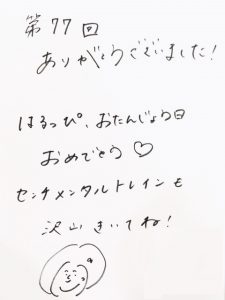 第77回
ありがとうございました!
はるっぴ、おたんじょう日
おめでとう♡
センチメンタルトレインも
沢山きいてね!